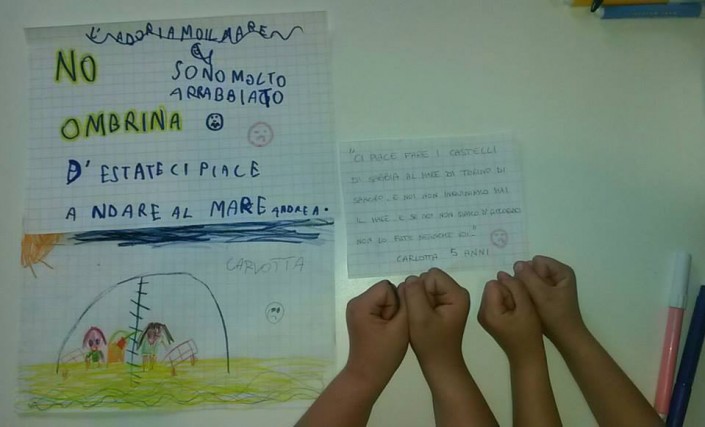 L'ADORIAMO IL MARE
NO
SONO MOLTO
ARRABBIATO
OMBRINA
D'ESTATE CI PIACE
A NDARE AL MARE ANDREA.
CARLOTTA
"CI PIACE FARE I CASTELLI
DI SABBIA AL MARE DI TORINO DI
SANGRO. E NOI NON INQUINIAMO MAI
IL MARE. E SE NOI NON
NON LO FATE NEANCHE VOI."
CARLOTTA 5 ANNI